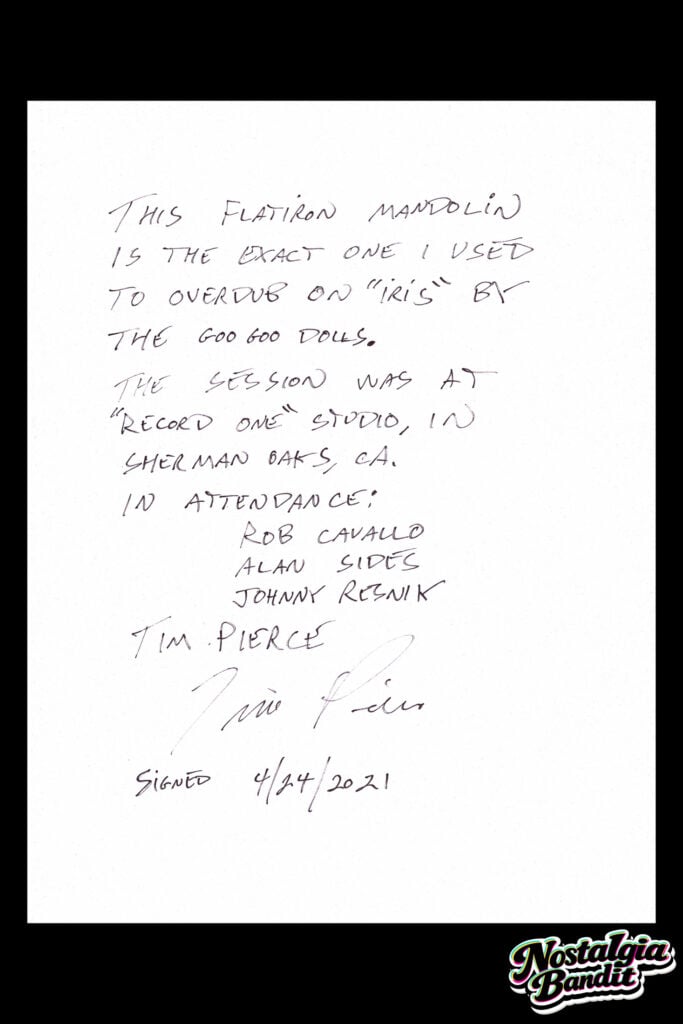 THIS FLATIRON MANDOLIN
IS THE EXACT ONE I USED
TO OVERDUB ON "IRIS" BY
THE GOO GOO DOLLS.
THE SESSION WAS AT
"RECORD ONE" STUDIO, IN
SHERMAN OAKS, CA.
IN ATTENDANCE:
ROB CAVALLO
ALAN SIDES
JOHNNY RESNIK
TIM PIERCE
Tim Pierce
SIGNED 4/24/2021
Nostalgia
Bandit